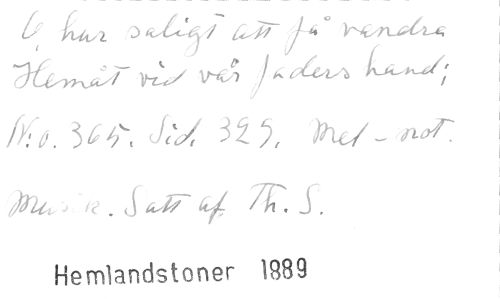 O, hur saligt att få vandra
Hemåt vid vår faders hand;
N:o. 365. Sid. 329. Mel-not.
Musik. Satt af Th. S.
Hemlandstoner 1889